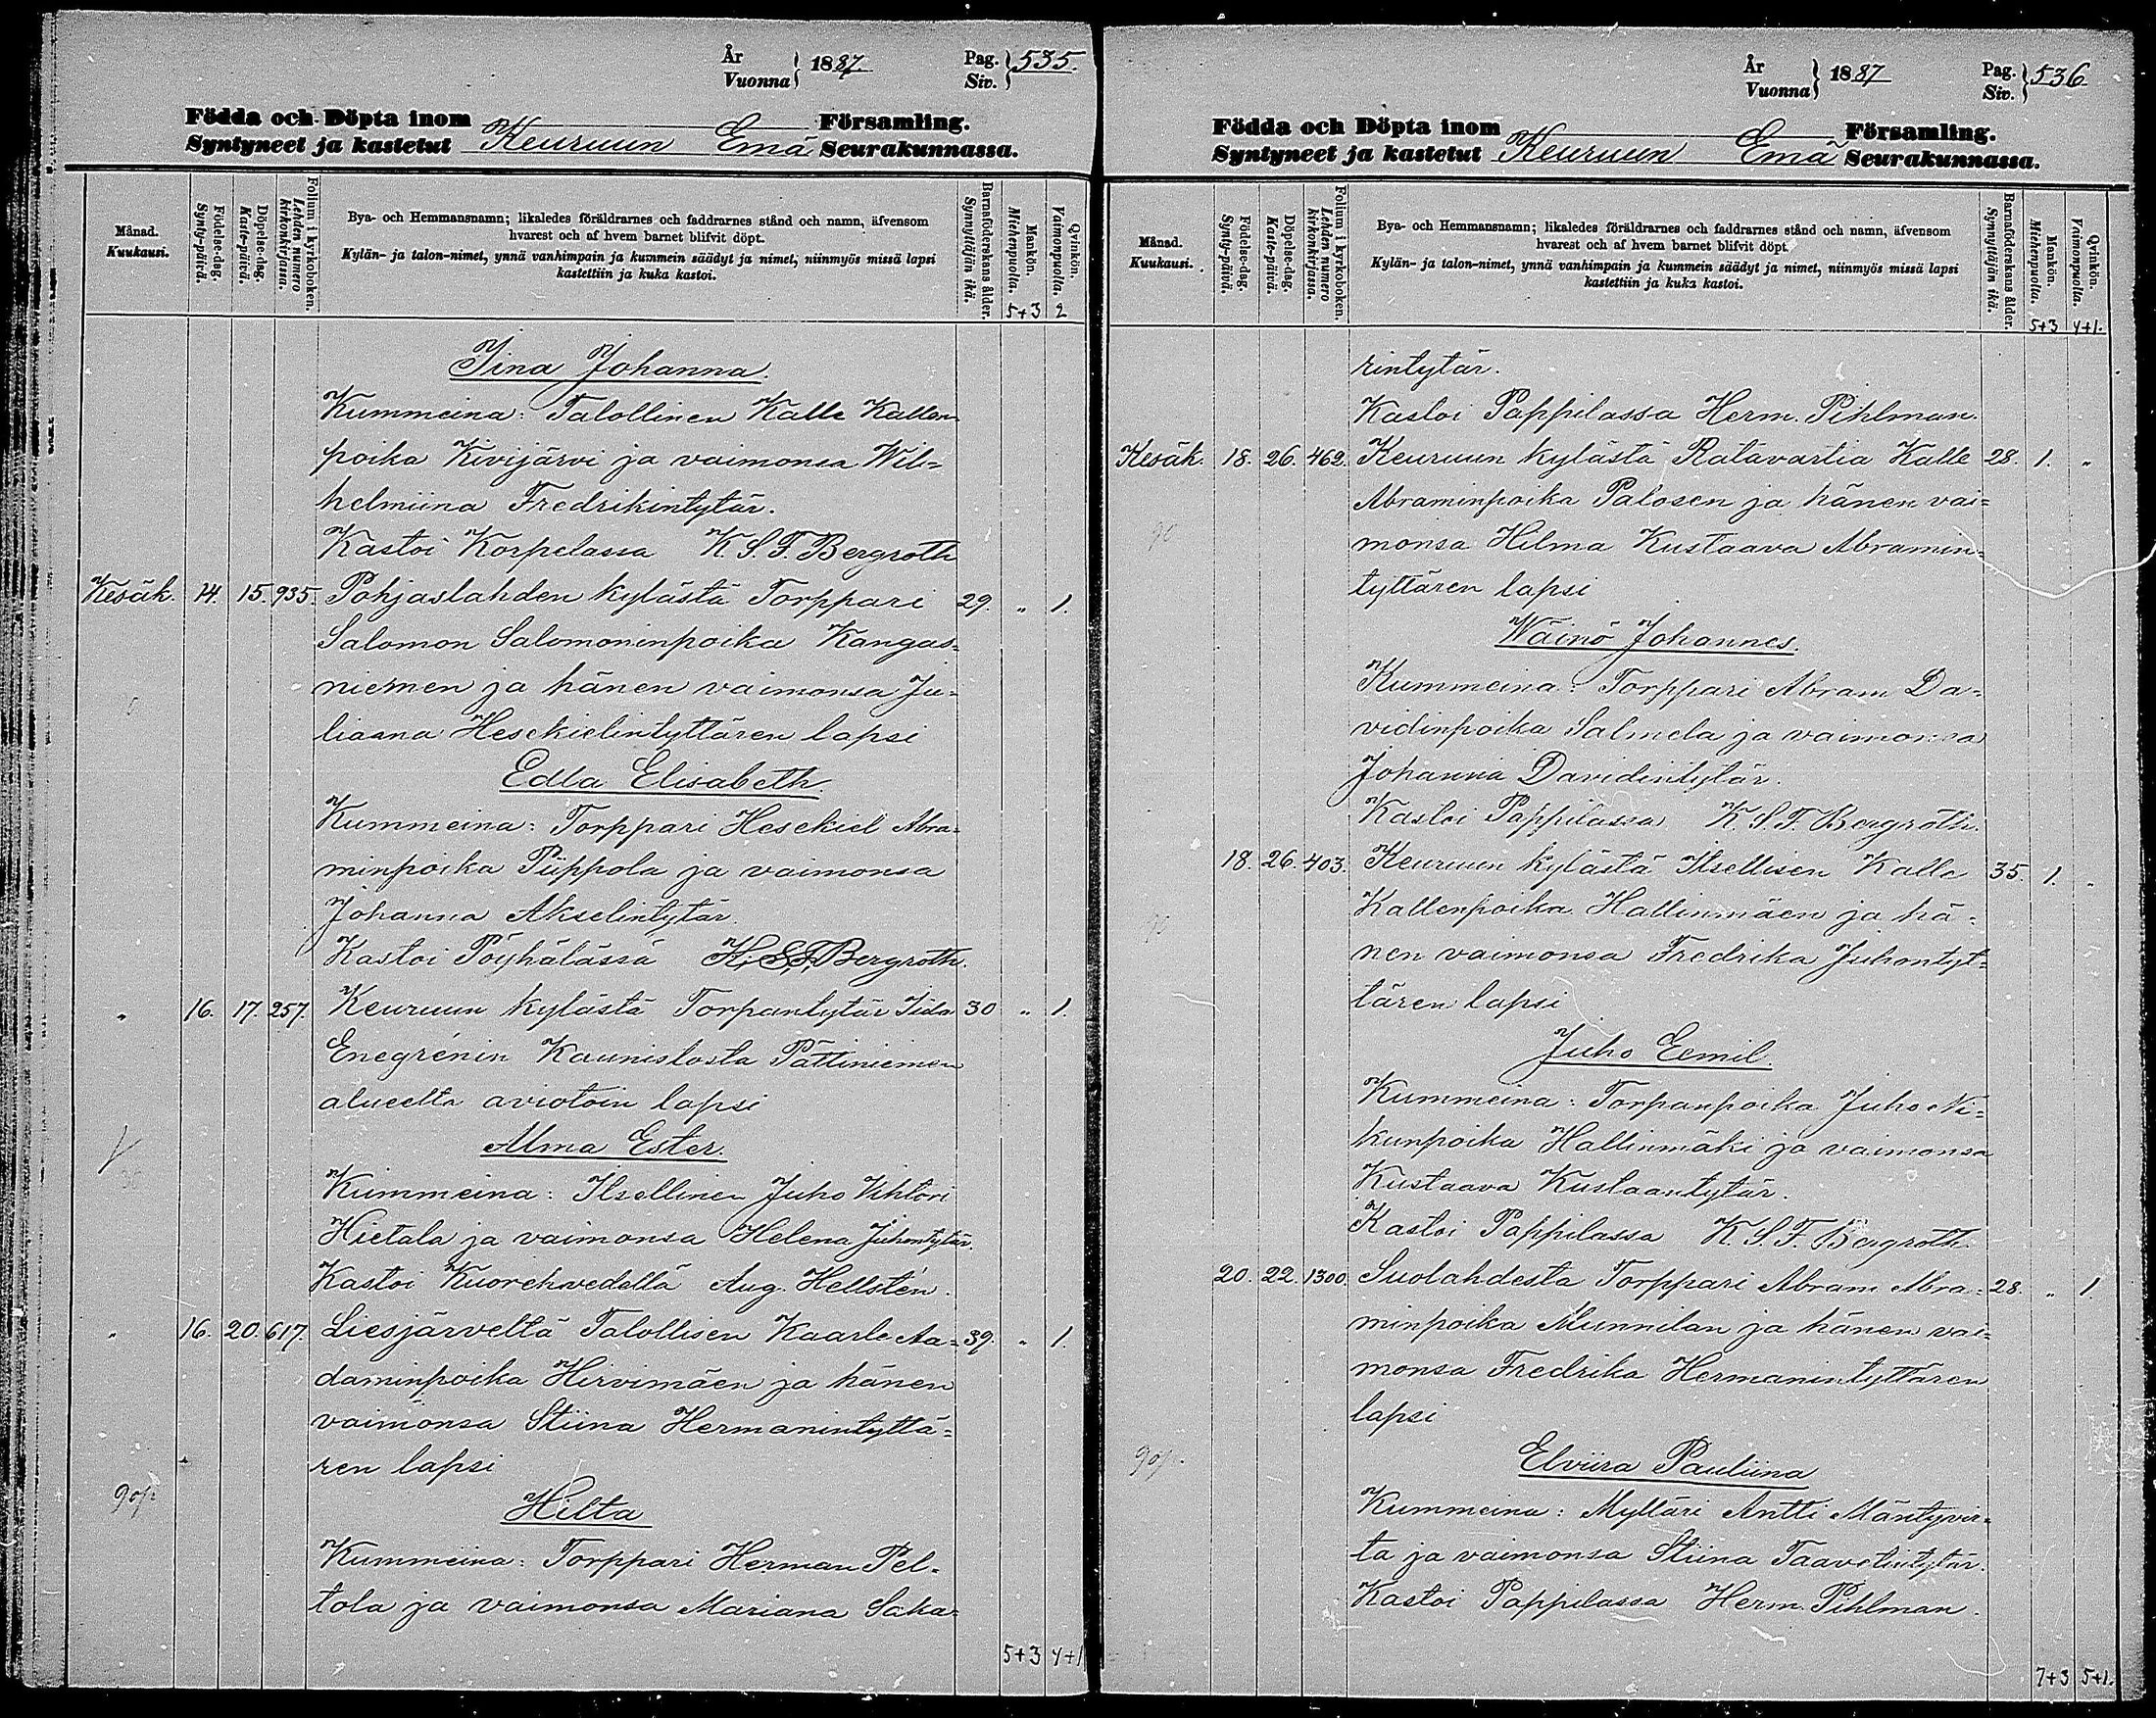 År Vuonna } 1887. Pag. Siv. } 535.
Födda och Döpta inom Församling.
Syntyneet ja kastetut Keuruun Emä Seurakunnassa.
Månad. Kuukausi.
Födelse-dag. Synty-päivä.
Döpelse-dag. Kaste-päivä.
Folium i kyrkoboken. Lehden numero kirkonkirjassa.
Bya- och Hemmansnamn; likaledes föräldrarnes och faddrarnes stånd och namn, äfvensom
hvarest och af hvem barnet blifvit döpt.
Kylän- ja talon-nimet, ynnä vanhimpain ja kummein säädyt ja nimet, niinmyös missä lapsi
kastettiin ja kuka kastoi.
Barnaföderskans ålder. Synnyttäjän ikä.
Mankön. Miehenpuolia.
Qvinkön. Vaimonpuolia.
5+3 2
Iina Johanna.
Kummeina: Talollinen Kalle Kallen-
poika Kivijärvi ja vaimonsa Wil=
helmiina Fredrikintytär.
Kastoi Korpelassa K. S. F. Bergroth
Kesäk. 14. 15. 935. Pohjaslahden kylästä Torppari 29. „ 1.
Salomon Salomoninpoika Kangas=
niemen ja hänen vaimonsa Ju=
liaana Hesekielintyttären lapsi
Edla Elisabeth.
Kummeina: Torppari Hesekiel Abra=
minpoika Piippola ja vaimonsa
Johanna Akselintytär.
Kastoi Pöyhälässä K. S. F. Bergroth.
„ 16. 17. 257. Keuruun kylästä Torpantytär Iida 30 „ 1.
Enegrénin Kaunistosta Pättiniemen
alueelta aviotoin lapsi
Alma Ester.
Kummeina: Itsellinen Juho Vihtori
Hietala ja vaimonsa Helena Juhontytär.
Kastoi Kuorehvedellä Aug. Hellstén.
„ 16. 20. 617. Liesjärveltä Talollisen Kaarle Aa= 39. „ 1.
daminpoika Hirvimäen ja hänen
vaimonsa Stiina Hermanintyttä=
ren lapsi
Hilta
Kummeina: Torppari Herman Pel=
tola ja vaimonsa Mariana Saka=
5+3 4+1
År Vuonna } 1887 Pag. Siv. } 536.
Födda och Döpta inom Församling.
Syntyneet ja kastetut Keuruun Emä Seurakunnassa.
Månad. Kuukausi.
Födelse-dag. Synty-päivä.
Döpelse-dag. Kaste-päivä.
Folium i kyrkoboken. Lehden numero kirkonkirjassa.
Bya- och Hemmansnamn; likaledes föräldrarnes och faddrarnes stånd och namn, äfvensom
hvarest och af hvem barnet blifvit döpt.
Kylän- ja talon-nimet, ynnä vanhimpain ja kummein säädyt ja nimet, niinmyös missä lapsi
kastettiin ja kuka kastoi.
Barnaföderskans ålder. Synnyttäjän ikä.
Mankön. Miehenpuolia.
Qvinkön. Vaimonpuolia.
5+3 4+1.
rintytär.
Kastoi Pappilassa Herm. Pihlman.
Kesäk. 18. 26. 462. Keuruun kylästä Ratavartia Kalle 28. 1. „
Abraminpoika Palosen ja hänen vai=
monsa Hilma Kustaava Abramin=
tyttären lapsi
Wäinö Johannes.
Kummeina: Torppari Abram Da=
vidinpoika Salmela ja vaimonsa
Johanna Davidintytär.
Kastoi Pappilassa K. S. F. Bergroth.
18. 26. 403. Keuruun kylästä Itsellisen Kalle 35. 1. „
Kallenpoika Hallinmäen ja hä=
nen vaimonsa Fredrika Juhontyt=
tären lapsi
Juho Eemil.
Kummeina: Torpanpoika Juho Ni=
kunpoika Hallinmäki ja vaimonsa
Kustaava Kustaantytär.
Kastoi Pappilassa K. S. F. Bergroth
20. 22. 1300. Suolahdesta Torppari Abram Abra= 28. „ 1
minpoika Munnilan ja hänen vai=
monsa Fredrika Hermanintyttären
lapsi
Elviira Pauliina
Kummeina: Mylläri Antti Mäntyvir=
ta ja vaimonsa Stiina Taavetintytär.
Kastoi Pappilassa Herm. Pihlman.
7+3 5+1.